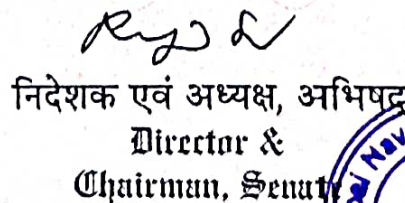 निदेशक एवं अध्यक्ष, अभिषद्
Director &
Chairman, Senate